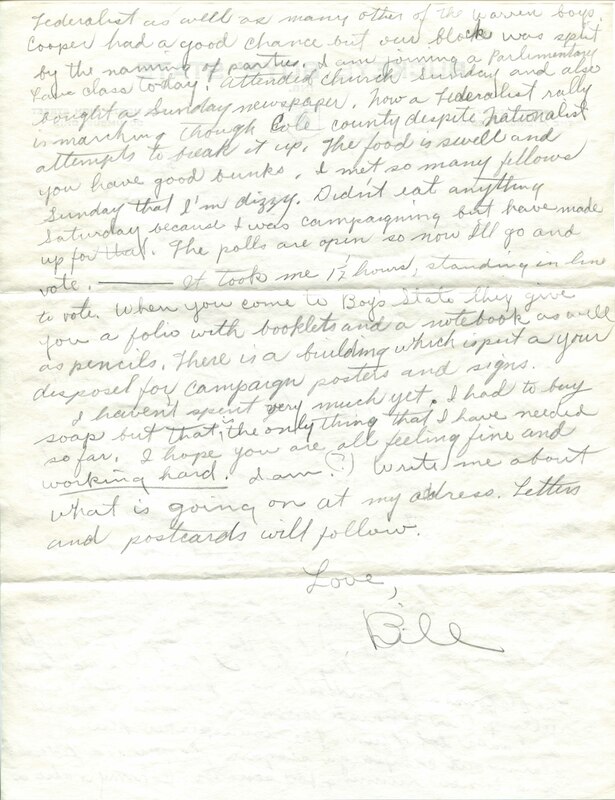 Federalist as well as many other of the Warren boys.
Cooper had a good chance but our block was split
by the naming of parties. I am joining a Parlimentary
Law class today. Attended church Sunday and also
bought a Sunday newspaper. Now a Federalist rally
is marching though Cole county despite Nationalist
attempts to break it up. The food is swell and
you have good bunks. I met so many fellows
Sunday that I'm dizzy. Didn't eat anything
Saturday because I was campaigning but have made
up for that. The polls are open so now I'll go and
vote. —— It took me 1½ hours, standing in line
to vote. When you come to Boy's State they give
you a folio with booklets and a notebook as well
as pencils. There is a building which is put a your
disposel for campaign posters and signs.
I haven't spent very much yet. I had to buy
soap but that is the only thing that I have needed
so far. I hope you are all feeling fine and
working hard. I am (?) Write me about
what is going on at my adress. Letters
and postcards will follow.
Love,
Bill